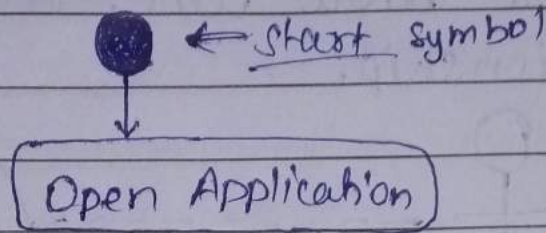 ← start symbol
Open Application